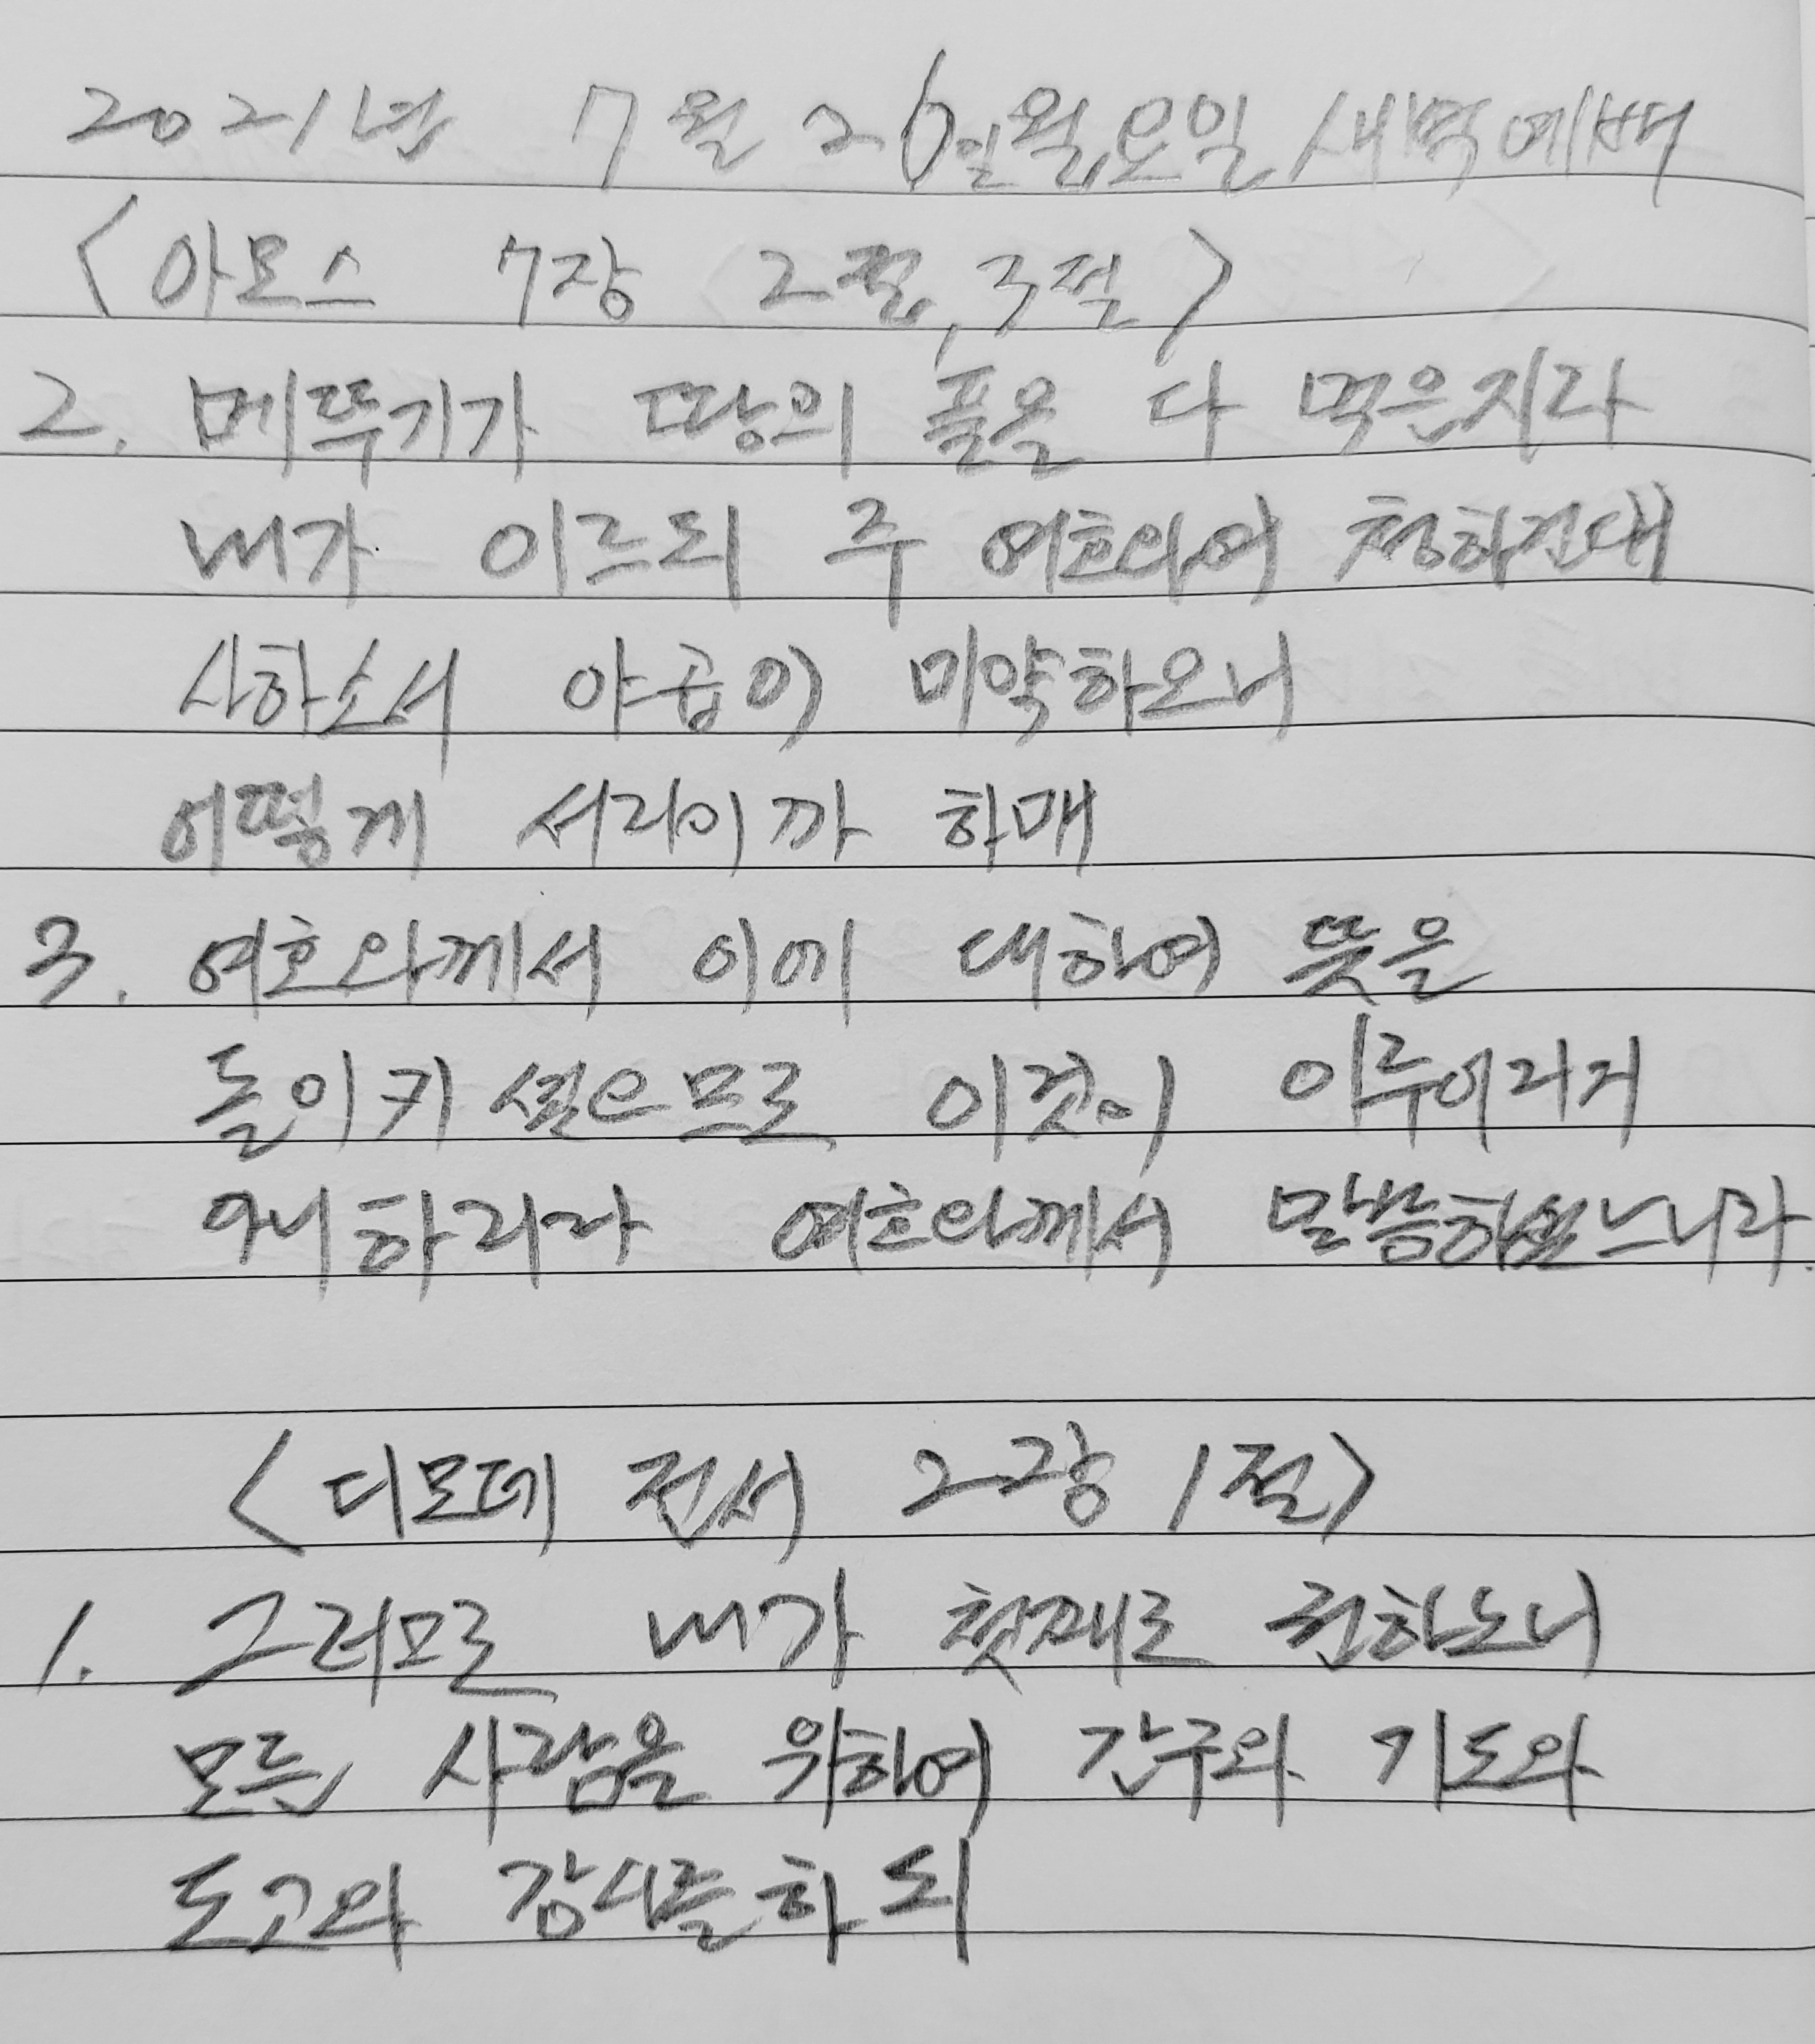 2021년 7월 26일 월요일 새벽예배
<아모스 7장 2절, 3절>
2. 메뚜기가 땅의 풀을 다 먹은지라
내가 이르되 주 여호와여 청하건대
사하소서 야곱이 미약하오니
어떻게 서리이까 하매
3. 여호와께서 이에 대하여 뜻을
돌이키셨으므로 이것이 이루어지지
아니하리라 여호와께서 말씀하셨느니라.
<디모데 전서 2장 1절>
1. 그러므로 내가 첫째로 권하노니
모든 사람을 위하여 간구와 기도와
도고와 감사를 하되